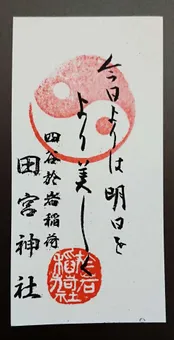 今日よりは明日を
より美しく
四谷於岩稲荷
田宮神社
於岩
稲荷社